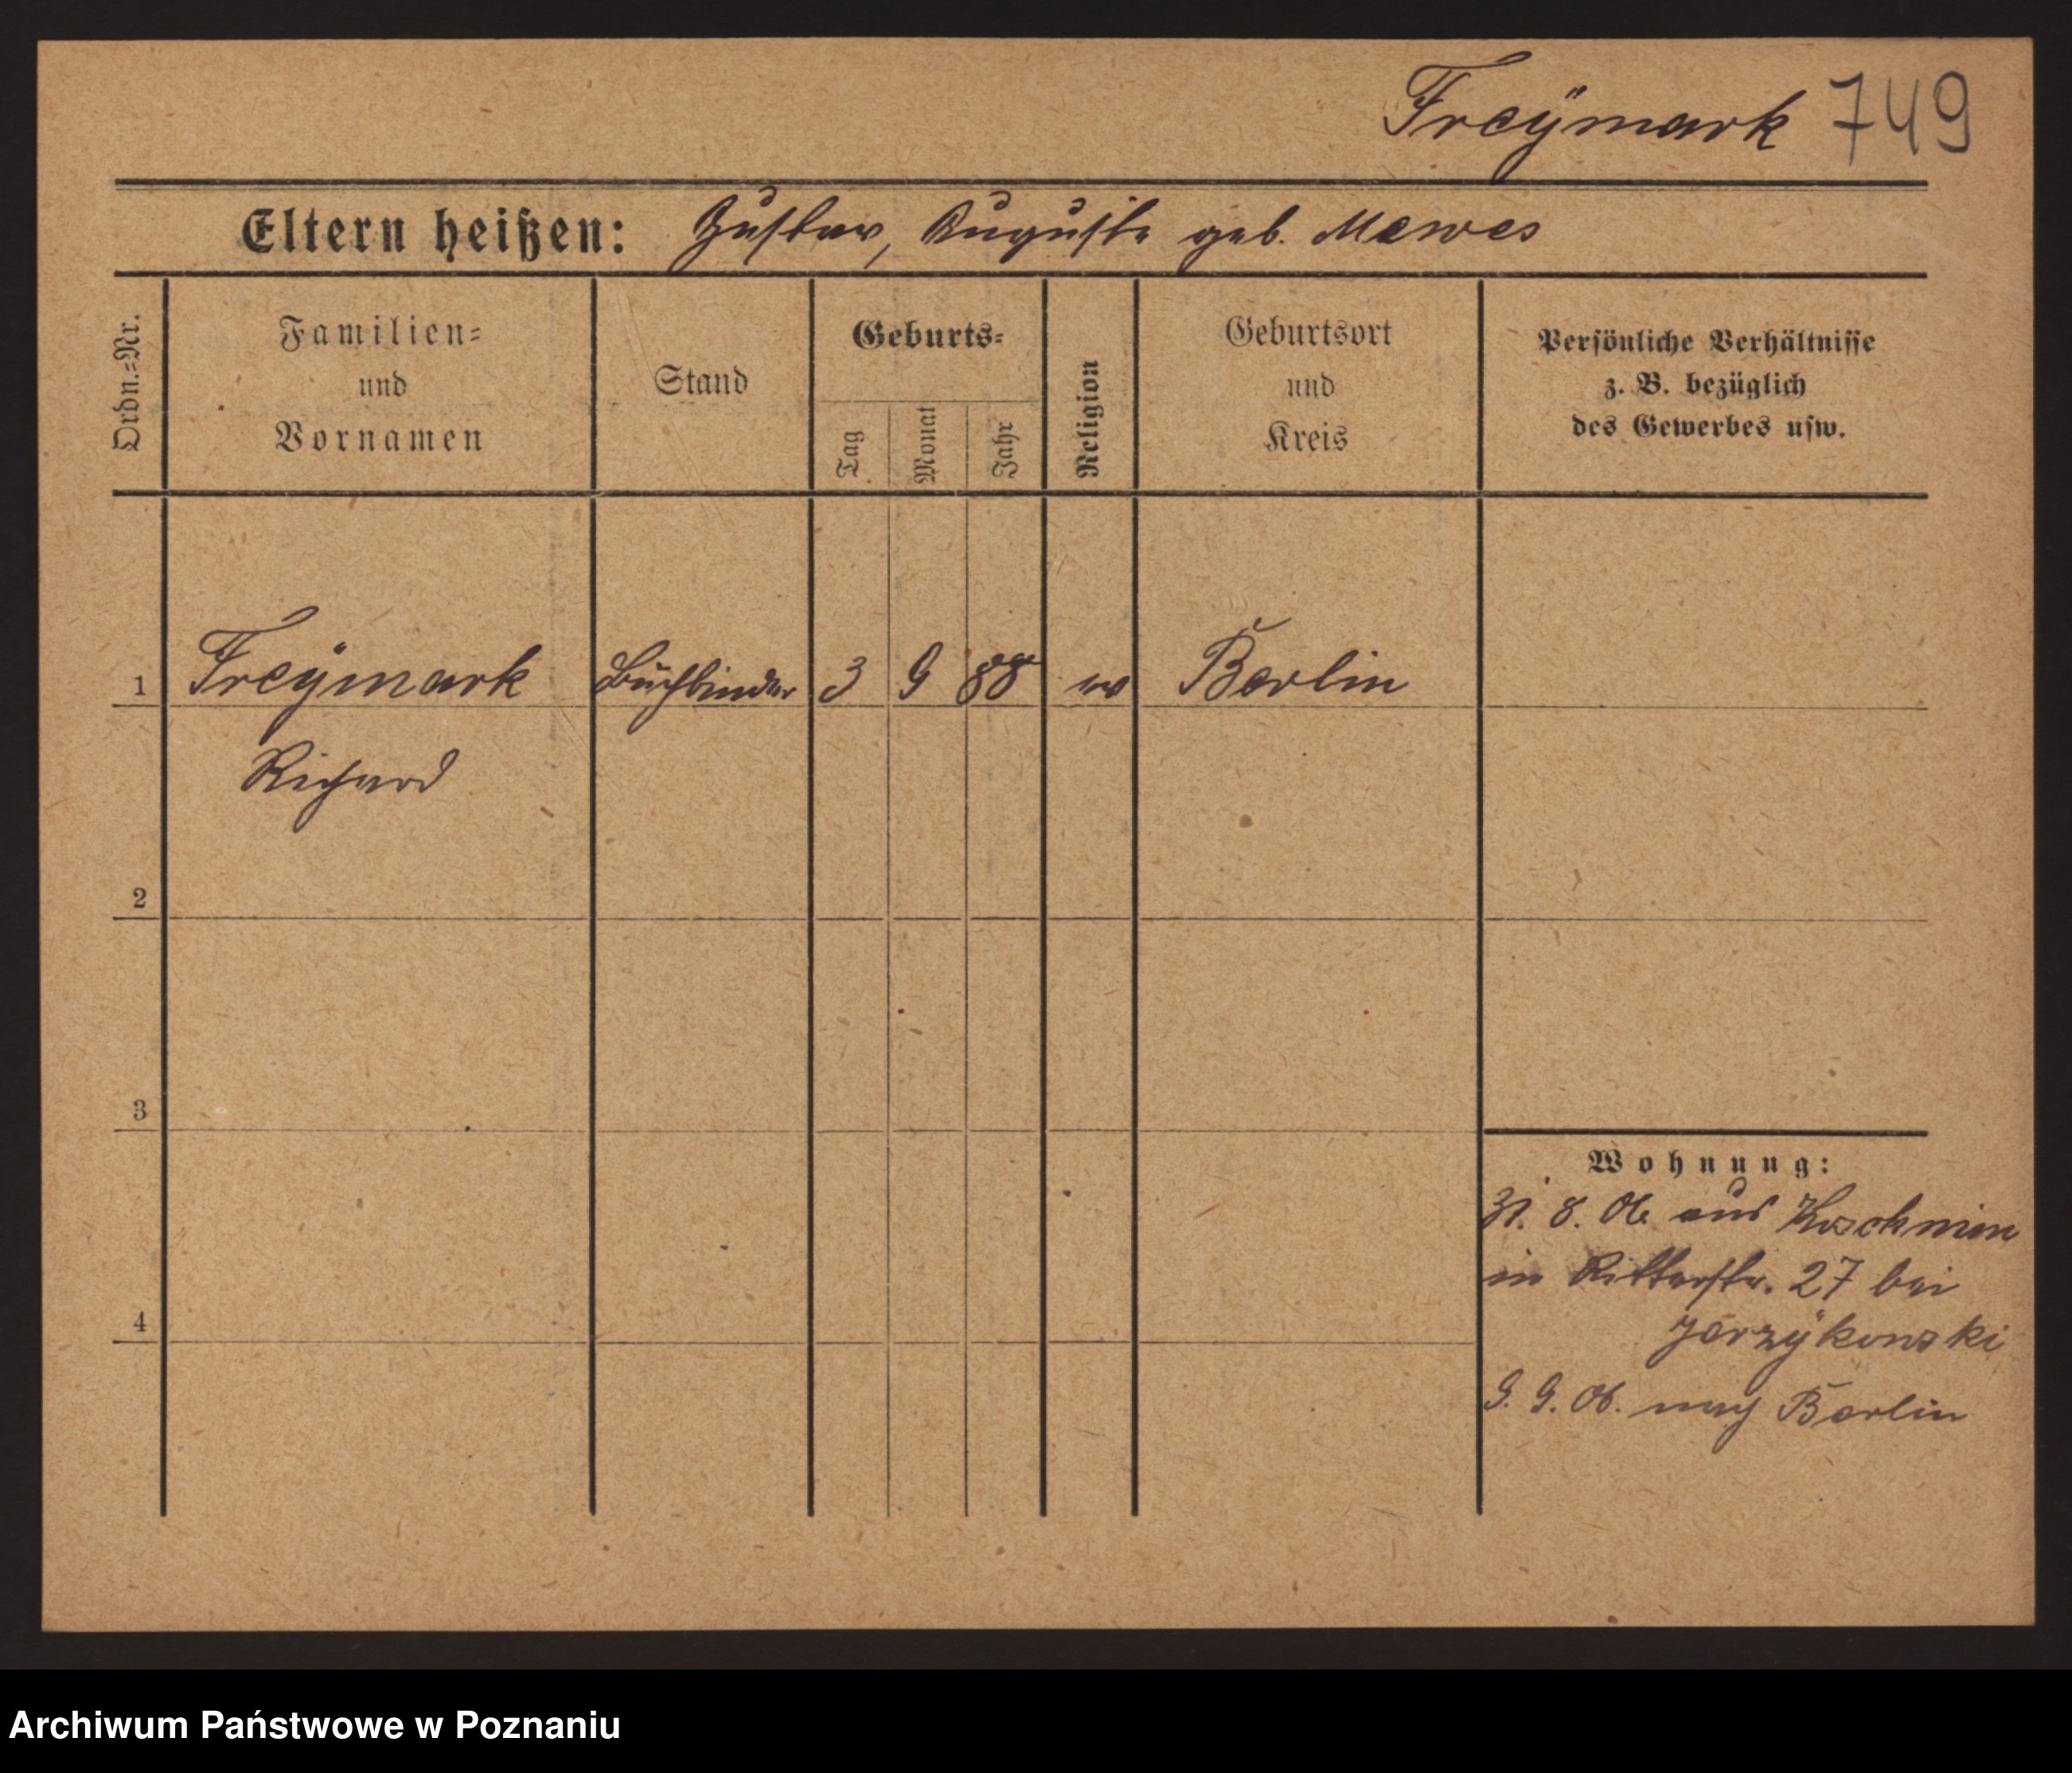 Freÿmark 749
Eltern heißen: Gustav, Auguste geb. Mewes
Ordn.=Nr.
Familien=
und
Vornamen
Stand
Geburts=
Tag
Monat
Jahr
Religion
Geburtsort
und
Kreis
Persönliche Verhältnisse
z. B. bezüglich
des Gewerbes usw.
1 Freÿmark Buchbinder 3 9 88 ev Berlin
Richard
2
3
4
Wohnung:
31. 8. 06 aus Koschmin
in Ritterstr. 27 bei
Jerzÿkowski
9. 9. 06. nach Berlin
Archiwum Państwowe w Poznaniu